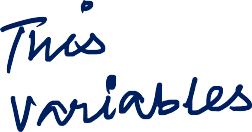 This
variables